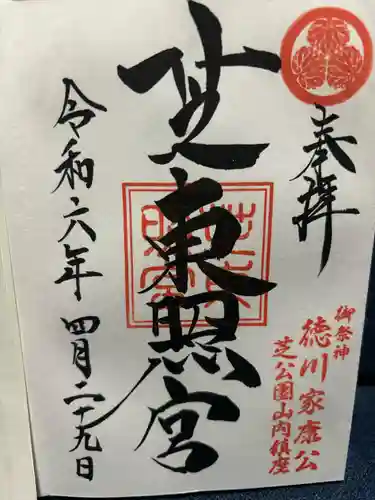 奉拝
御祭神
徳川家康公
芝公園山内鎮座
芝東照宮
令和六年四月二十九日